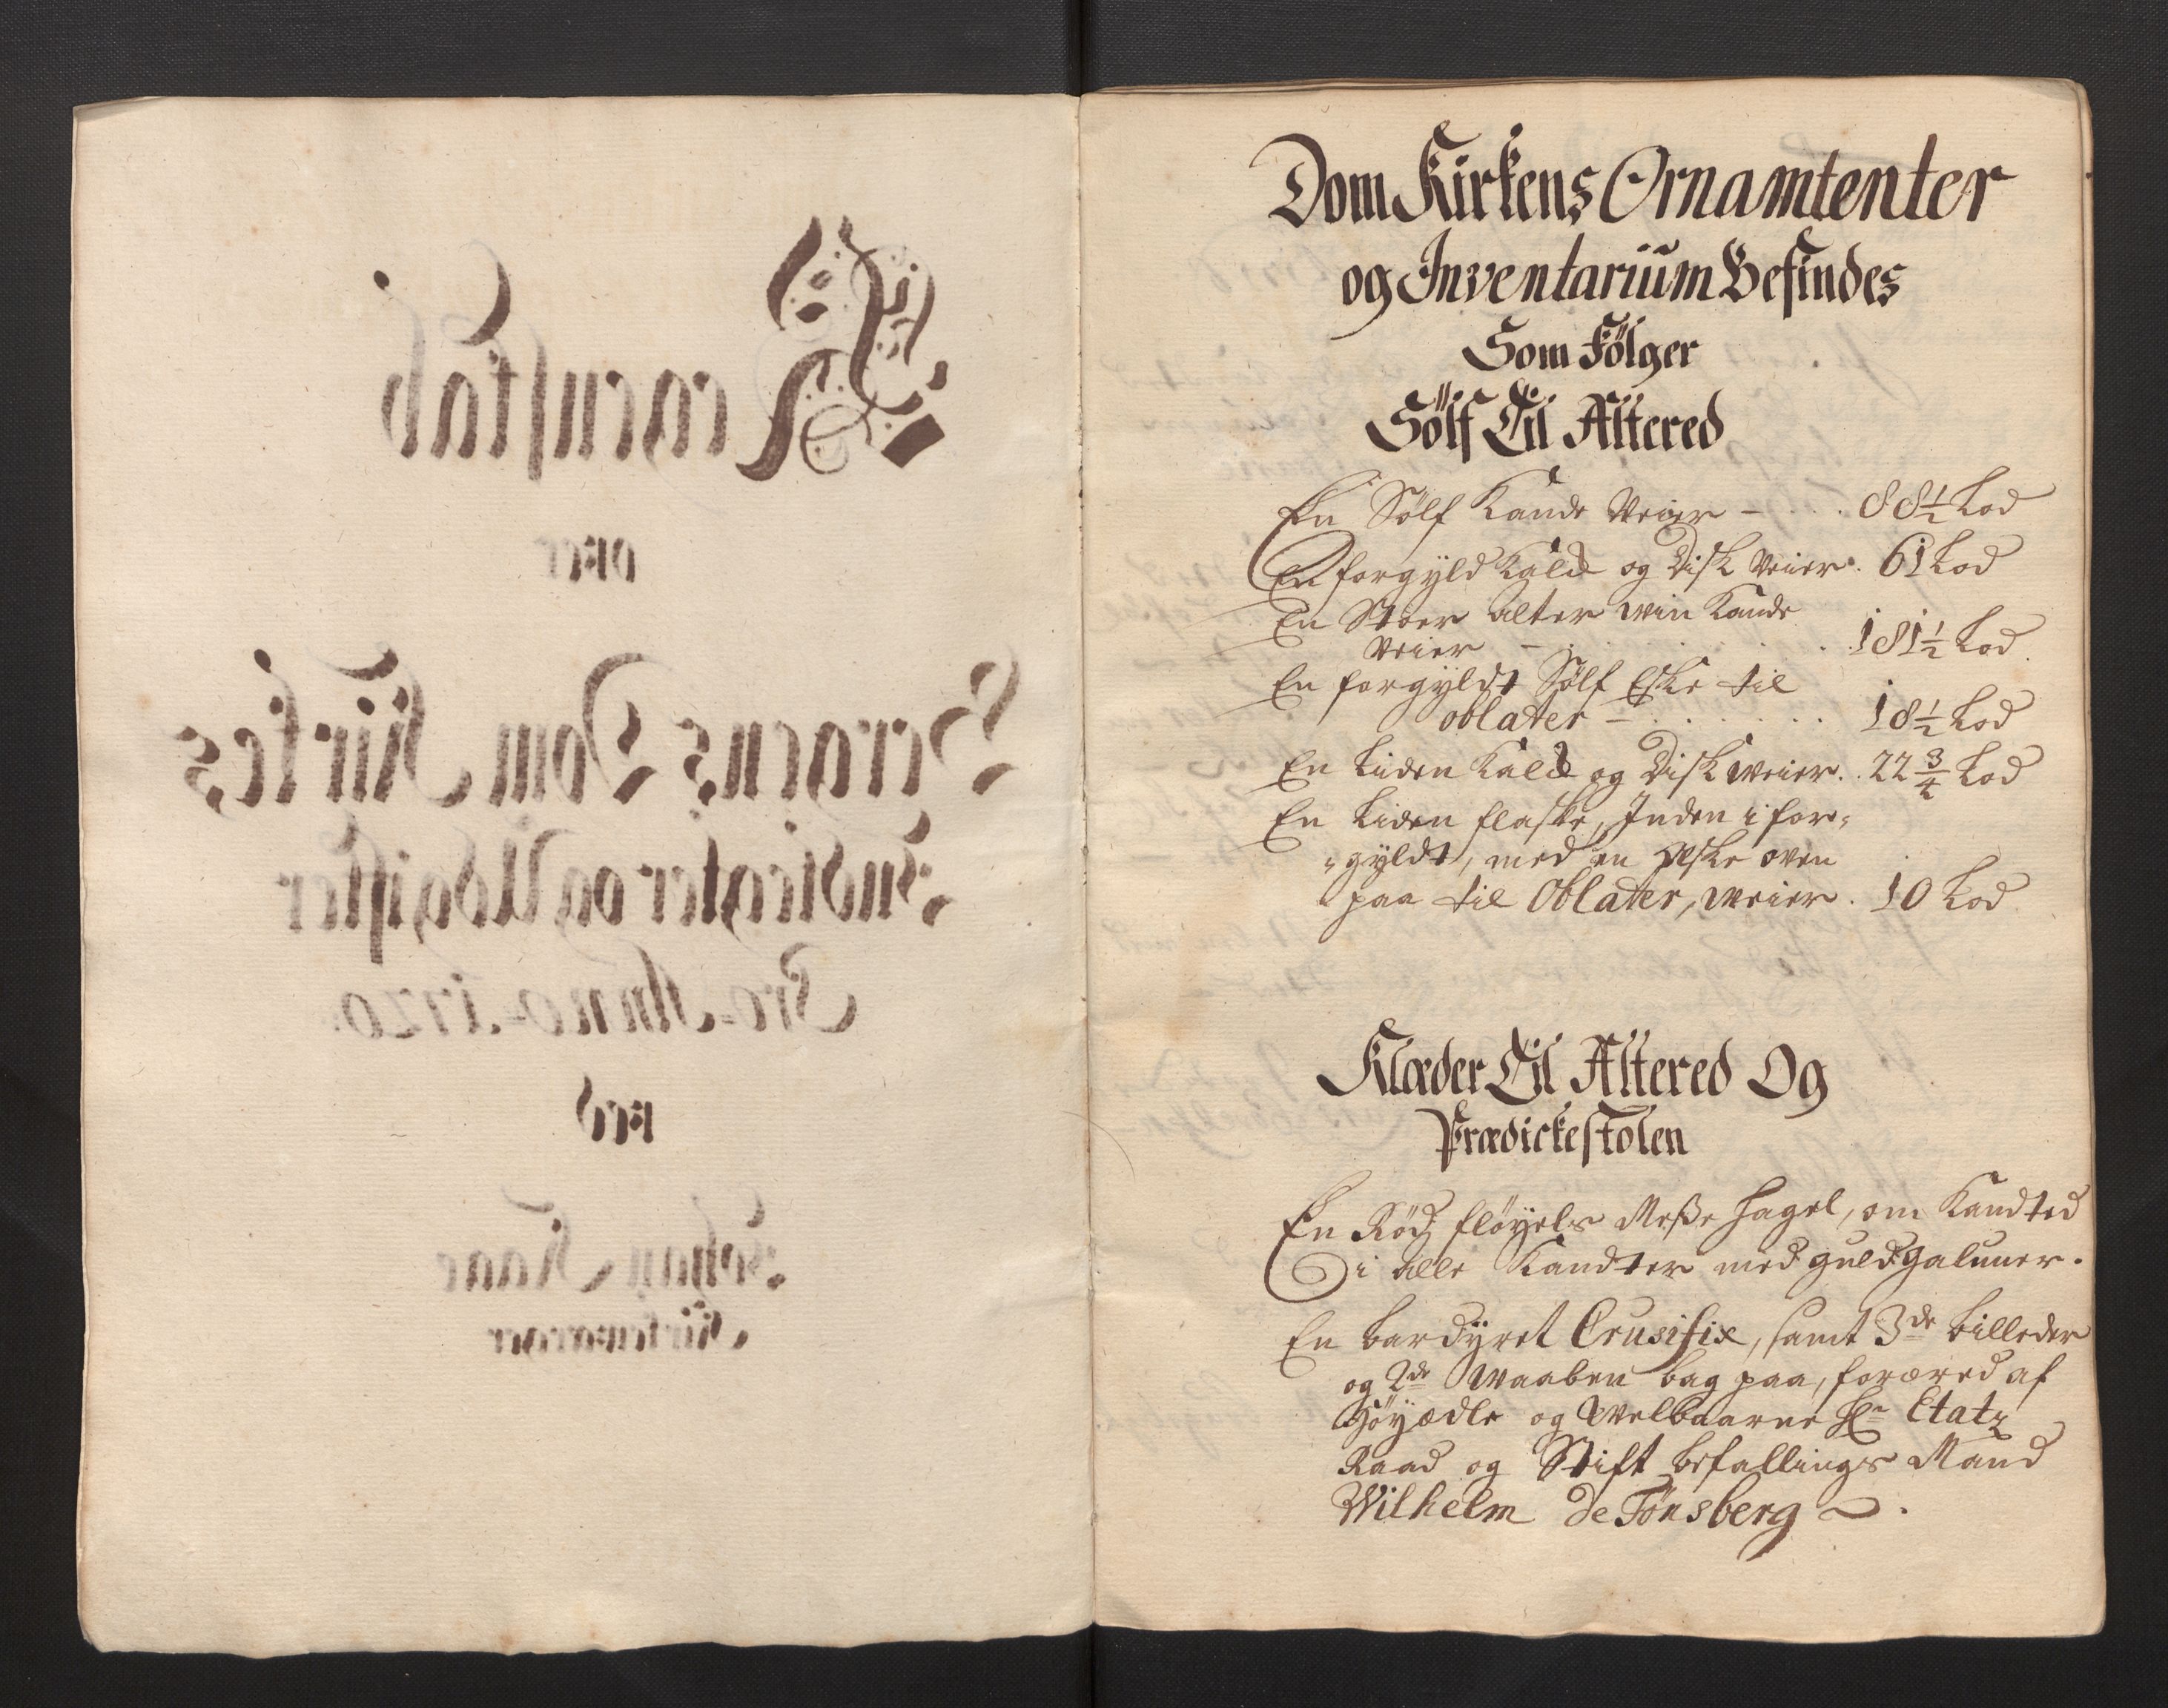 Regenskab
over
Bergens Dom Kirkes
Indtegter og Udgifter
Pro Anno 1720
ved
Johan Kaae
Kirkeværger
Dom Kirkens Ornamtenter
og Inventarium Befindes
Som Fölger
Sölf Til Altered
En Sölf Kande Veier - . . . 88½ Lod
En forgyld Kalck og Disk Veier. 61 Lod
En Stoer alter win Kande
Veier - . . . . . . . 181½ Lod
En forgyldt Sölf Eske til
oblater - . . . . . . 18½ Lod
En Liden Kalck og Disk weier. . 22¾ Lod
En Liden flaske, Inden i for-
-gyldt, med en Eske oven
paa til Oblater, weier . 10 Lod
Klæder Til Altered Og
Prædickestolen
En Röd flöyels Messe Hagel, om Kandted
i alle Kandter med guld galuner.
En bardyret Crusifix, samt 3de billeder
og 2de Waaben bag paa, foræred af
Höyædle og Welbaarne Hr Etatz
Raad og Stift befallings Mand
Wilhelm de Tönsberg